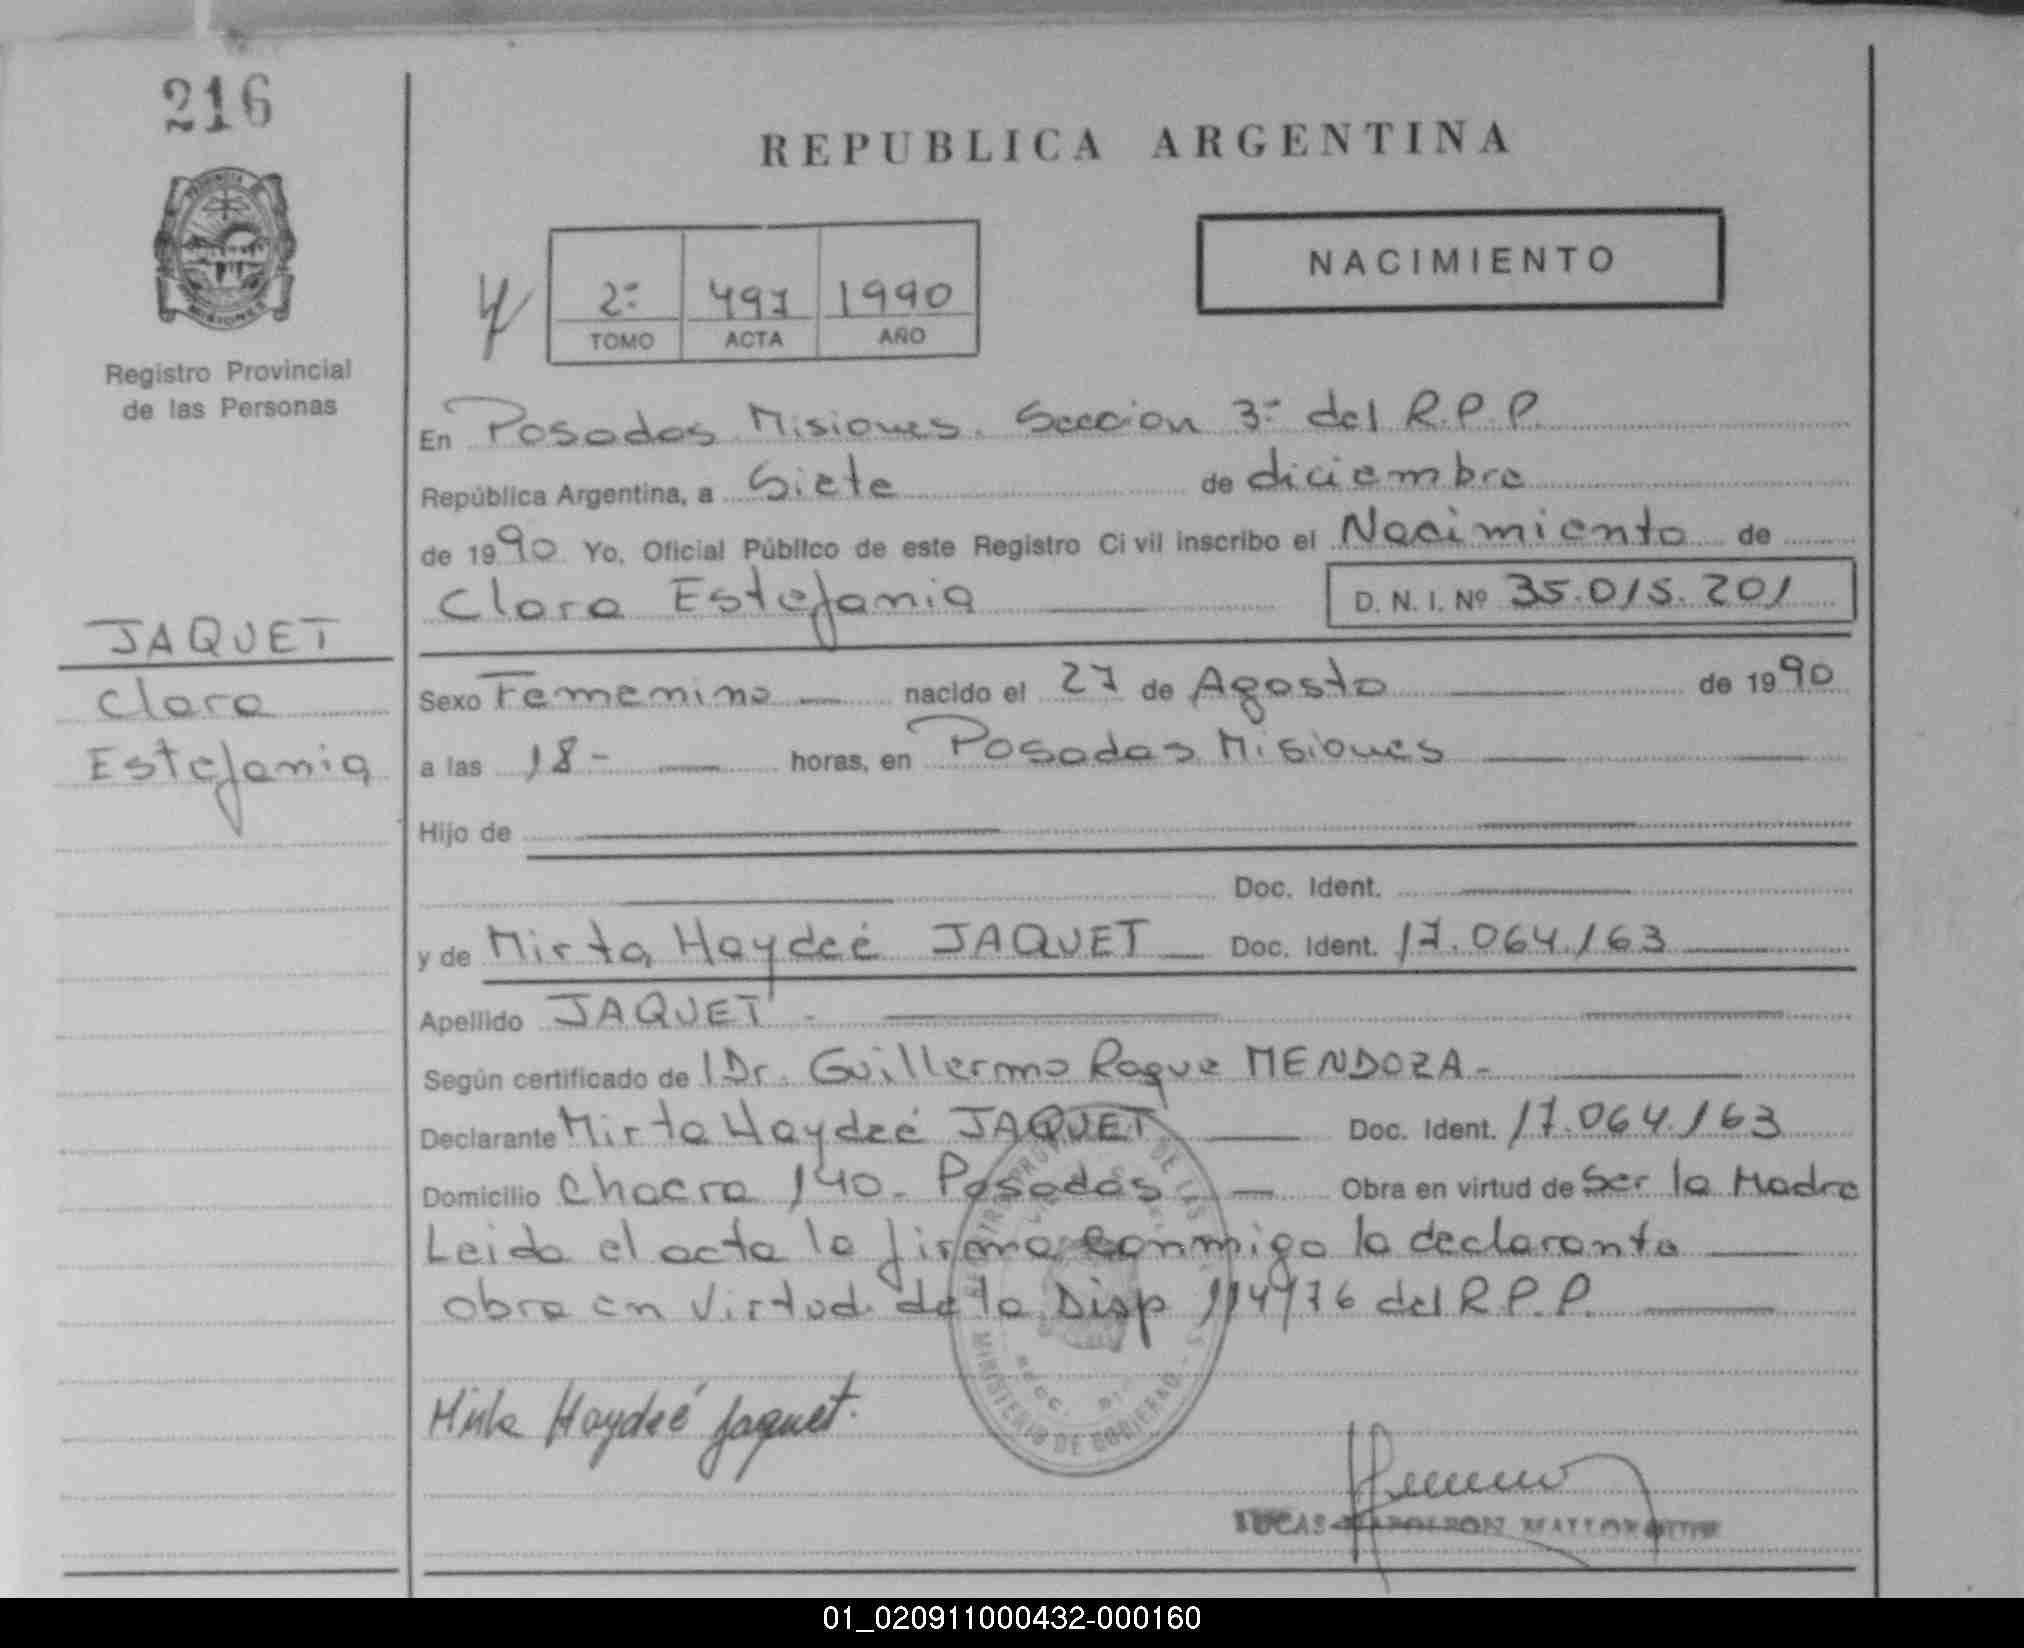 216
REPUBLICA ARGENTINA
NACIMIENTO
PROVINCIA
MISIONES
2º 497 1990
TOMO ACTA AÑO
Registro Provincial
de las Personas
En Posadas Misiones. Seccion 3ª del R.P.P.
República Argentina, a Siete de diciembre
de 1990 Yo, Oficial Público de este Registro Civil inscribo el Nacimiento de
Clara Estefania D. N. I. Nº 35.015.201
JAQUET
Clara
Estefania
Sexo Femenino nacido el 27 de Agosto de 1990
a las 18- horas, en Posadas Misiones
Hijo de
Doc. Ident.
y de Mirta Haydeé JAQUET Doc. Ident. 17.064.163
Apellido JAQUET -
Según certificado de l Dr. Guillermo Roque MENDOZA -
Declarante Mirta Haydeé JAQUET Doc. Ident. 17.064.163
Domicilio Chacra 140 - Posadas Obra en virtud de Ser la Madre
Leida el acta la firma conmigo la declarante
obra en virtud de la Disp 114/76 del R.P.P.
MINISTERIO DE GOBIERNO
Mirta Haydeé Jaquet.
LUCAS NAPOLEON
01_020911000432-000160